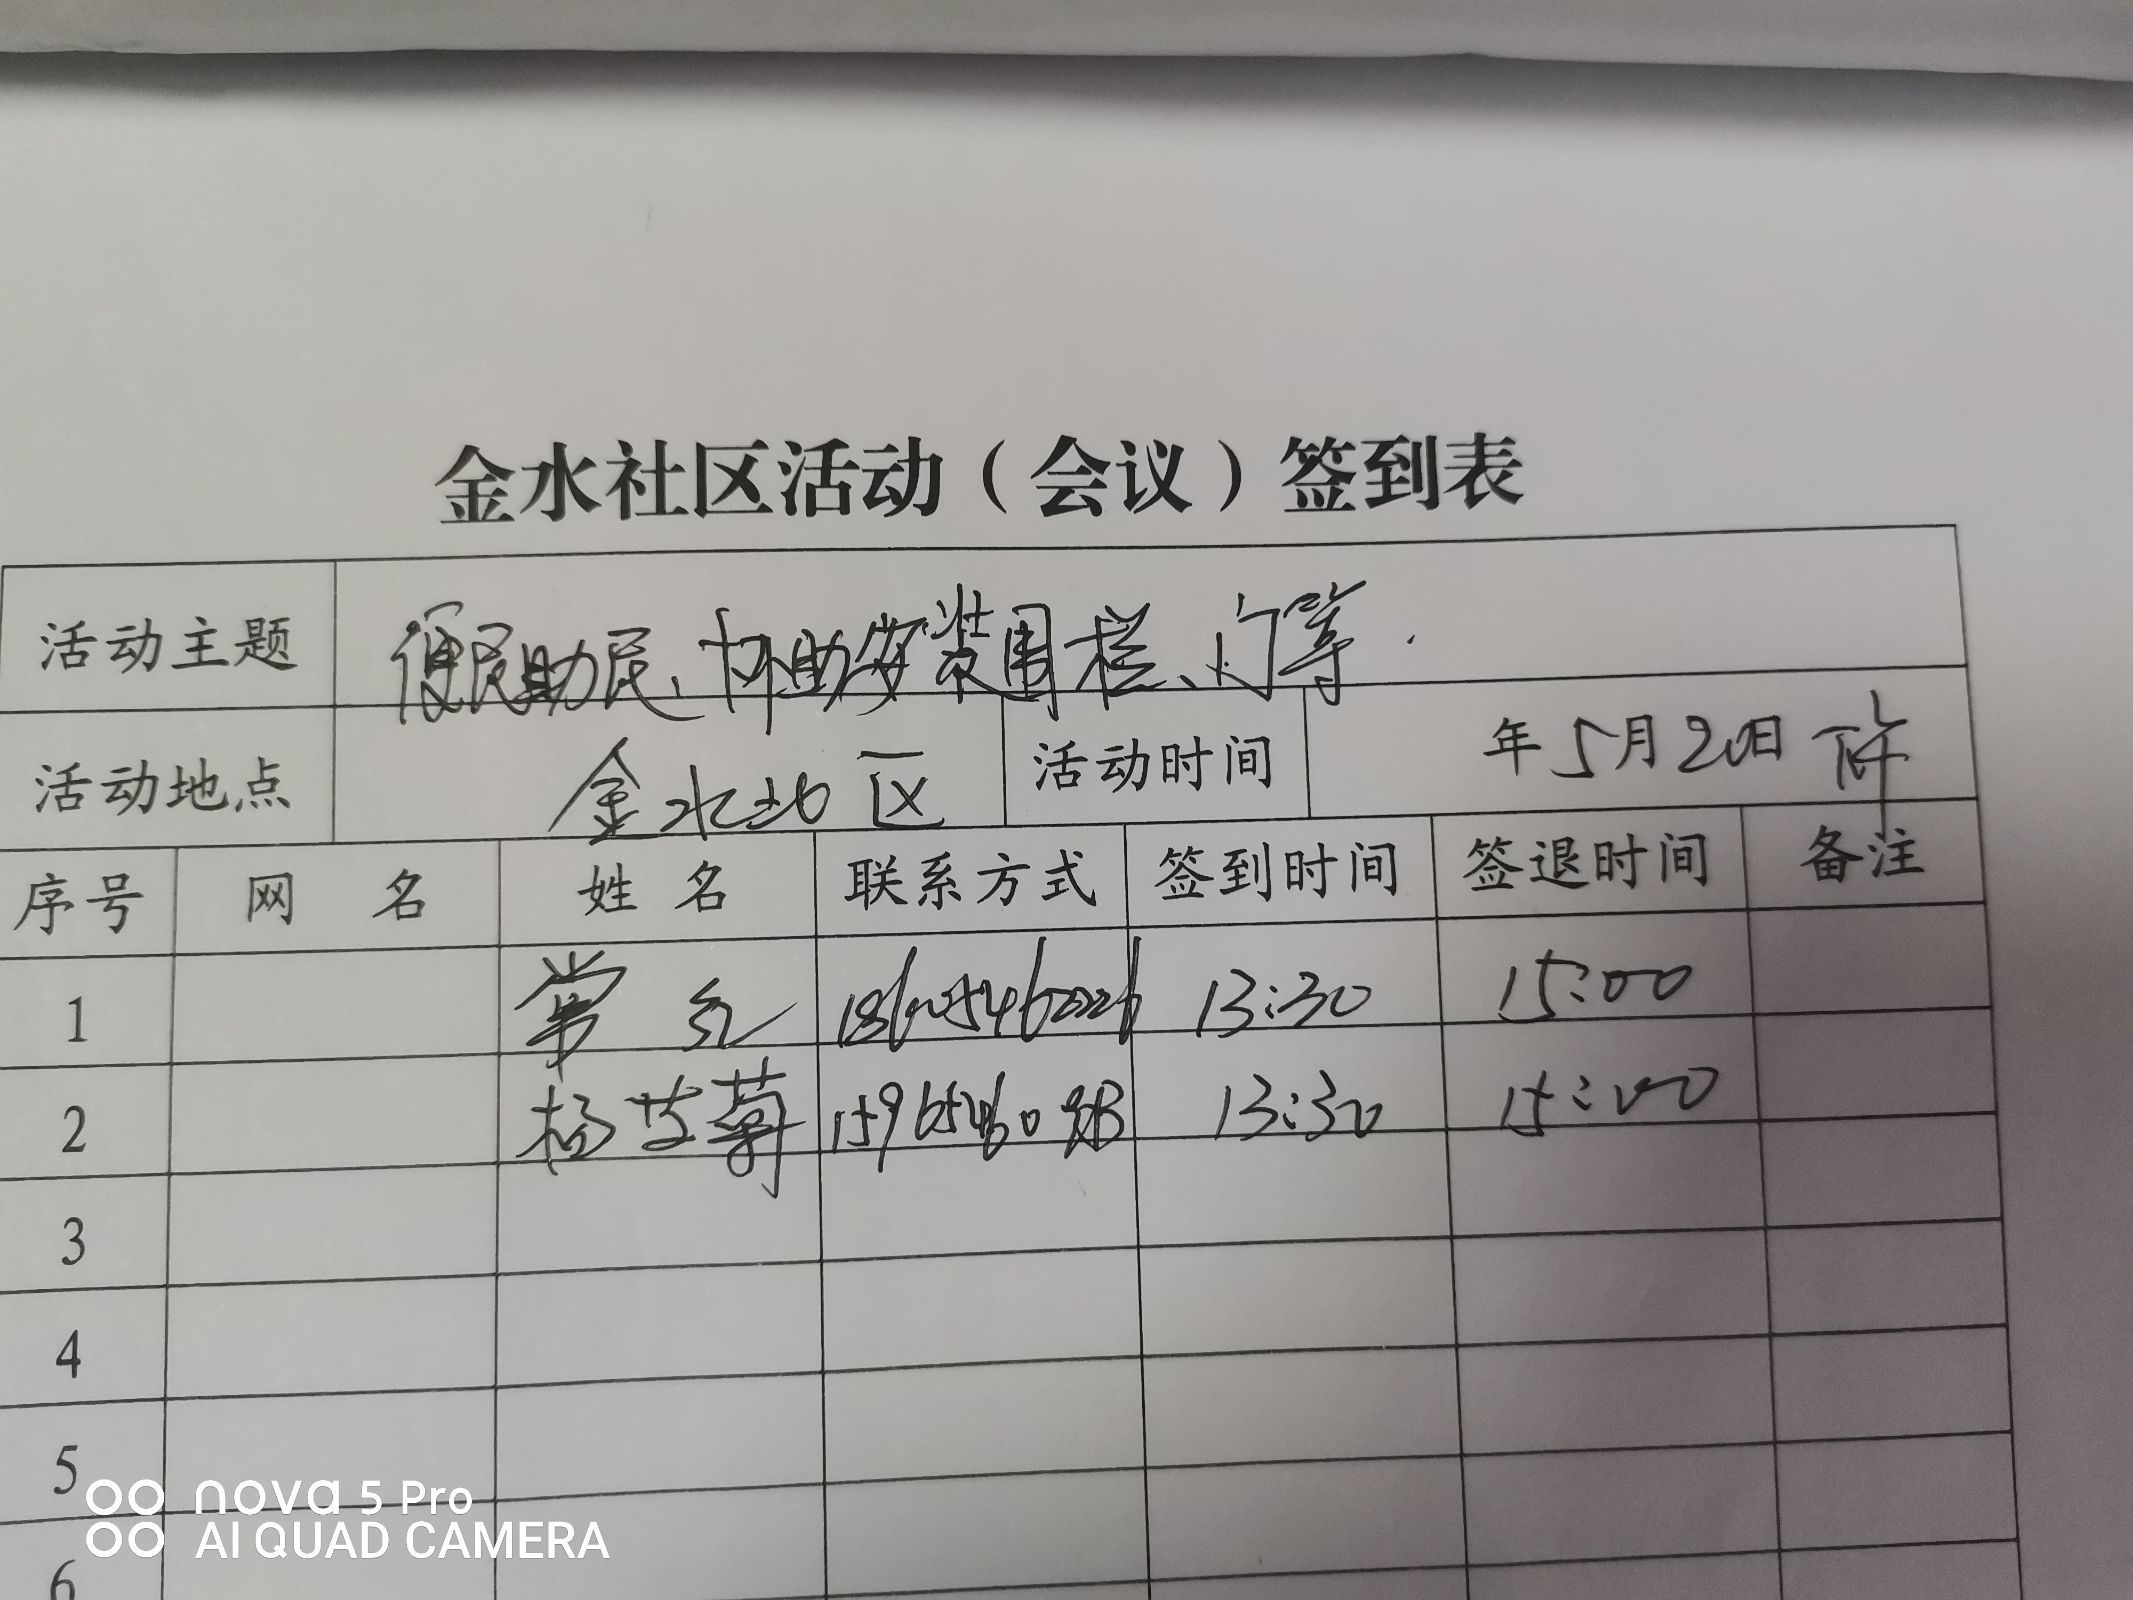 金水社区活动（会议）签到表
活动主题 便民助民、协助安装围栏、门等.
活动地点 金水北区 活动时间 年5月20日 下午
序号 网 名 姓 名 联系方式 签到时间 签退时间 备注
1 13:30 15:00
2 杨艾菊 13:30 15:00
3
4
5
6
nova 5 Pro
AI QUAD CAMERA